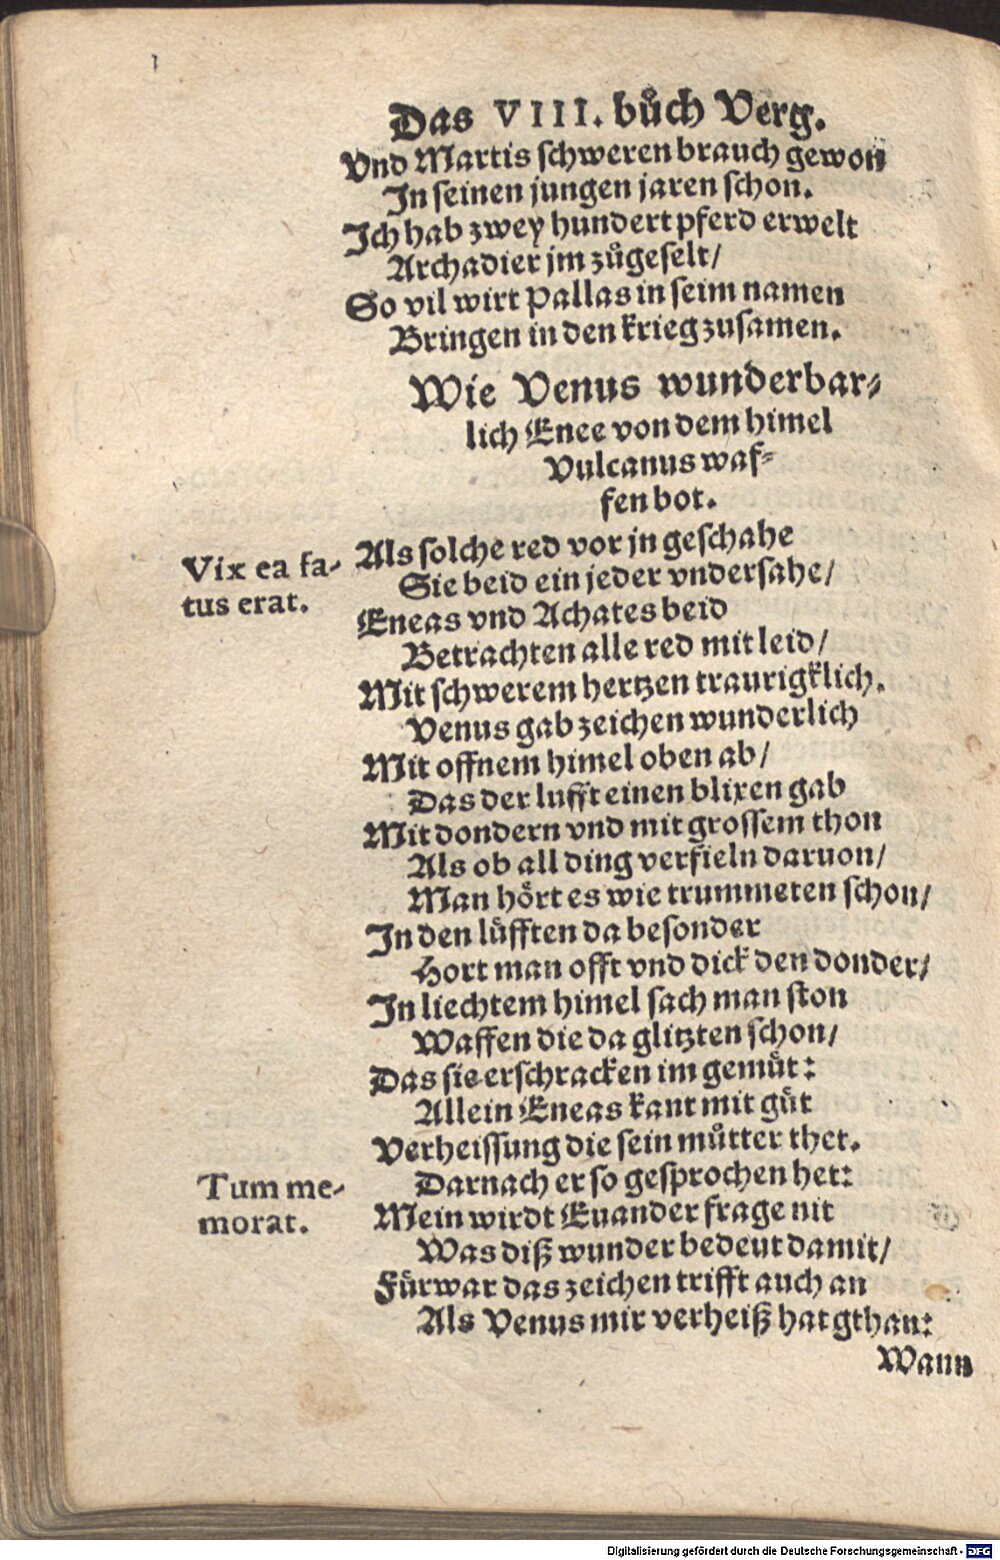 Das VIII. buͦch Verg.
Vnd Martis schweren brauch gewon
In seinen jungen jaren schon.
Ich hab zwey hundert pferd erwelt
Archadier jm zuͦgeselt/
So vil wirt Pallas in seim namen
Bringen in den krieg zusamen.
Wie Venus wunderbar⸗
lich Enee von dem himel
Vulcanus waf⸗
fen bot.
Vix ea fa-
tus erat.
Als solche red vor jn geschahe
Sie beid ein jeder vndersahe/
Eneas vnd Achates beid
Betrachten alle red mit leid/
Mit schwerem hertzen traurigklich.
Venus gab zeichen wunderlich
Mit offnem himel oben ab/
Das der lufft einen blixen gab
Mit dondern vnd mit grossem thon
Als ob all ding verfieln daruon/
Man hoͤrt es wie trummeten schon/
In den luͤfften da besonder
Hort man offt vnd dick den donder/
In liechtem himel sach man ston
Waffen die da glitzten schon/
Das sie erschracken im gemuͤt:
Allein Eneas kant mit guͤt
Verheissung die sein muͦtter thet.
Tum me-
morat.
Darnach er so gesprochen het:
Mein wirdt Euander frage nit
Was diß wunder bedeut damit/
Fuͤrwar das zeichen trifft auch an
Als Venus mir verheiß hat gthan:
Wann
Digitalisierung gefördert durch die Deutsche Forschungsgemeinschaft - DFG